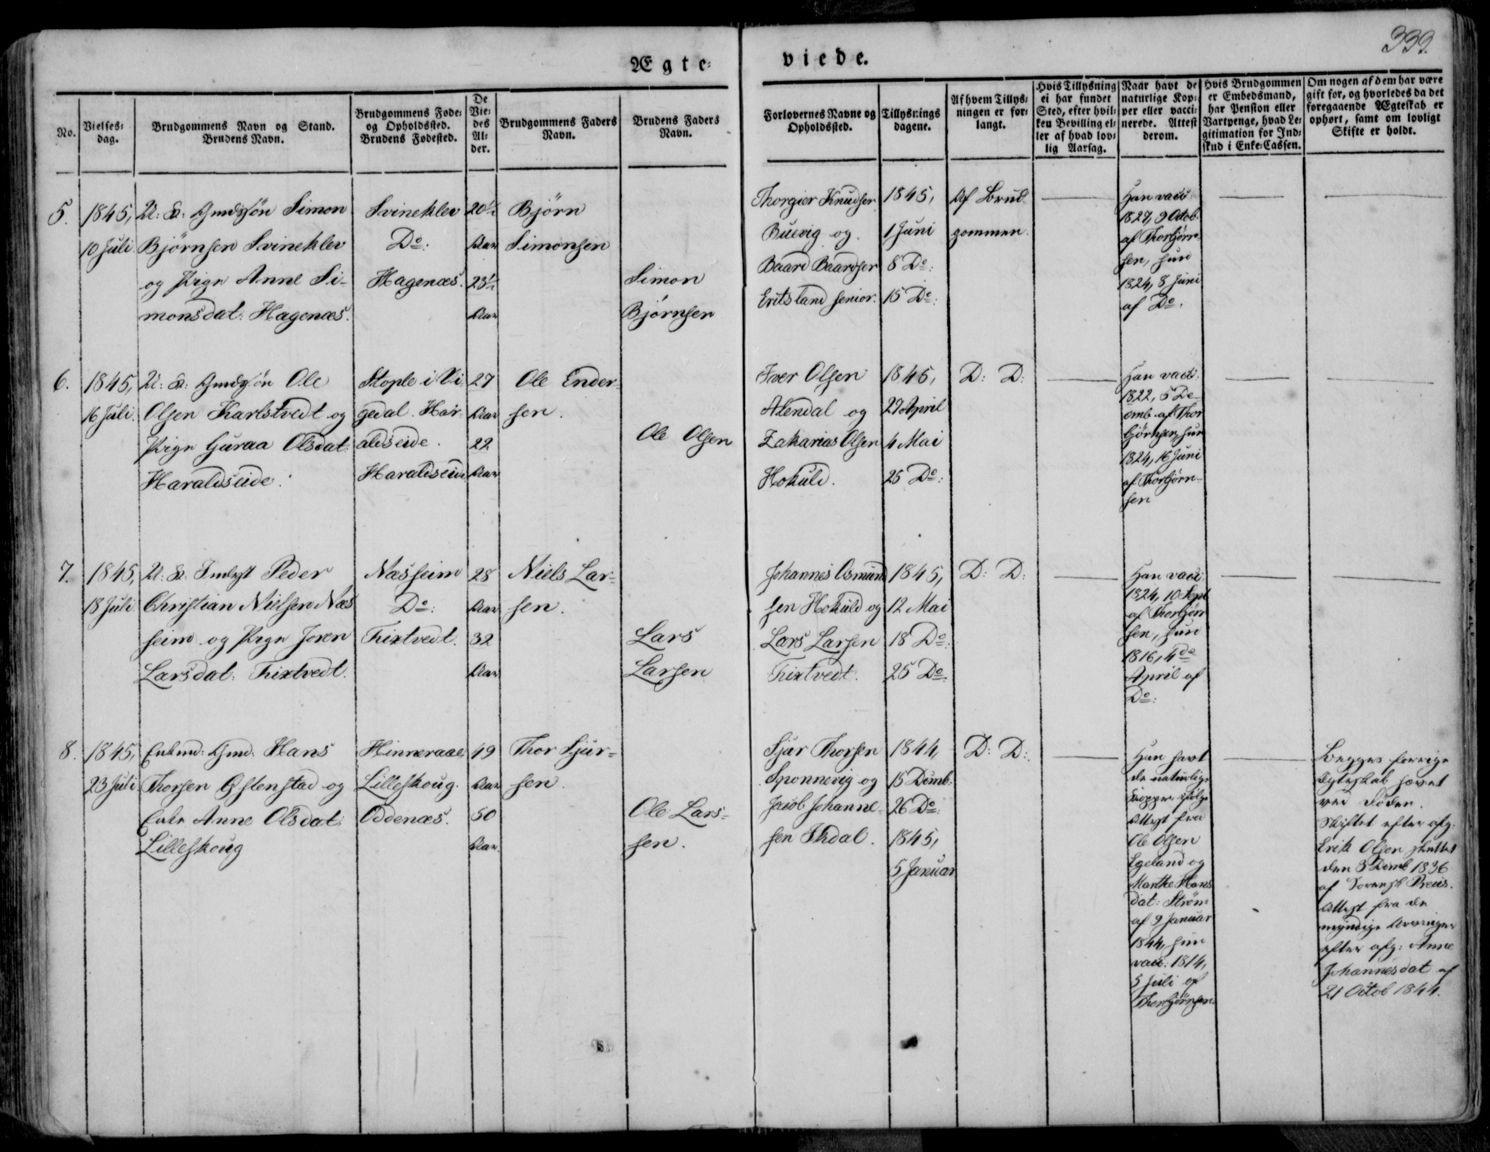 333.
Ægte- viede.
No.
Vielses-
dag.
Brudgommens Navn og Stand.
Brudens Navn.
Brudgommens Føde-
og Opholdssted.
Brudens Fødested.
De
Vie-
des
Al-
der.
Brudgommens Faders
Navn.
Brudens Faders
Navn.
Forlovernes Navne og
Opholdssted.
Tillysnings
dagene.
Af hvem Tillys-
ningen er for-
langt.
Hvis Tillysning
ei har fundet
Sted, efter hvil-
ken Bevilling el-
ler af hvad lov-
lig Aarsag.
Naar havt de
naturlige Kop-
per eller vacci-
nerede. Attest
derom.
Hvis Brudgommen
er Embedsmand,
har Pension eller
Vartpenge, hvad Le-
gitimation for Ind-
skud i Enke-Cassen.
Om nogen af dem har være
gift før, og hvorledes da det
foregaaende Ægteskab er
ophørt, samt om lovligt
Skifte er holdt.
5.
1845,
10 Juli
Simon
Bjørnsen Svineklev
og Pige Anne Si-
monsdat: Hagenæs.
Svineklev
Do:
Hagenæs.
Aar
Aar
Bjørn
Simonsen
Simon
Bjørnsen
Thorgier Knudsen
Buevig og
Baard Baardsen
Eritsland senior.
1845,
1 Juni
8 Do:
15 Do:
Af Brud-
gommen.
Han vacc:
1827, 9 Octob.
af Thorbjørn-
sen, hun
1824, 8 Juni
af Do.
6.
1845,
16 Juli
Ole
Olsen Karlstvedt og
Pige Guraa Olsdat
Haraldseide.
Stople i Vi
gedal. Har-
aldseide.
Haraldseide
27
Aar
22
Aar
Ole Ender-
sen.
Ole Olsen
Iver Olsen
og
Zakarias Olsen
Hokuld.
1845,
27 April
4 Mai
25 Do:
D: D:
Han vacc:
1822, 5 De-
cemb. af Thor
bjørnsen, hun
1824, 16 Juni
af Thorbjørn-
sen
7.
1845,
18 Juli
Peder
Christian Nielsen Næs
seim og Pige Joren
Larsdat: Tixtvedt.
Næsseim
Do:
Tixtvedt.
28
Aar
32
Aar
Niels Lar-
sen.
Lars
Larsen
Johannes Osmund
sen Hokuld og
Lars Larsen
Tixtvedt.
1845,
12 Mai
18 Do:
25 Do:
D: D:
Han vacc:
1824, 10 Sept
af Thorbjørn
sen, hun
1816, 4de
April af
Do:
8.
1845,
23 Juli
Enkemd: Gmd: Hans
Thorsen Østenstad og
Enke Anne Olsdat:
Lilleskoug
Hinneraae
Lilleskoug.
Oddenæs.
49
Aar
50
Aar
Thor Sjur-
sen.
Ole Lars-
sen.
Sjur Thorsen
Sponnevig og
Jacob Johanne-
sen
1844,
15 Decmb.
26 Do:
1845,
5 Januar
D: D:
Han havt
de naturlige
Kopper ifølge
Attest fra
Ole Olsen
Egeland og
Marthe Hans
dat: Strøm
af 9 Januar
1844, hun
vacc: 1814,
5 Juli af
Thorbjørnsen
Begges forrige
Ægteskab hævet
ved Døden.
Skiftet efter afg.
Erik Olsen sluttet
den 3 Decmb 1836
af Sorensk: Preus.
Attest fra de
myndige Arvinger
efter afg: Anne
Johannesdat af
21 Octob 1844.